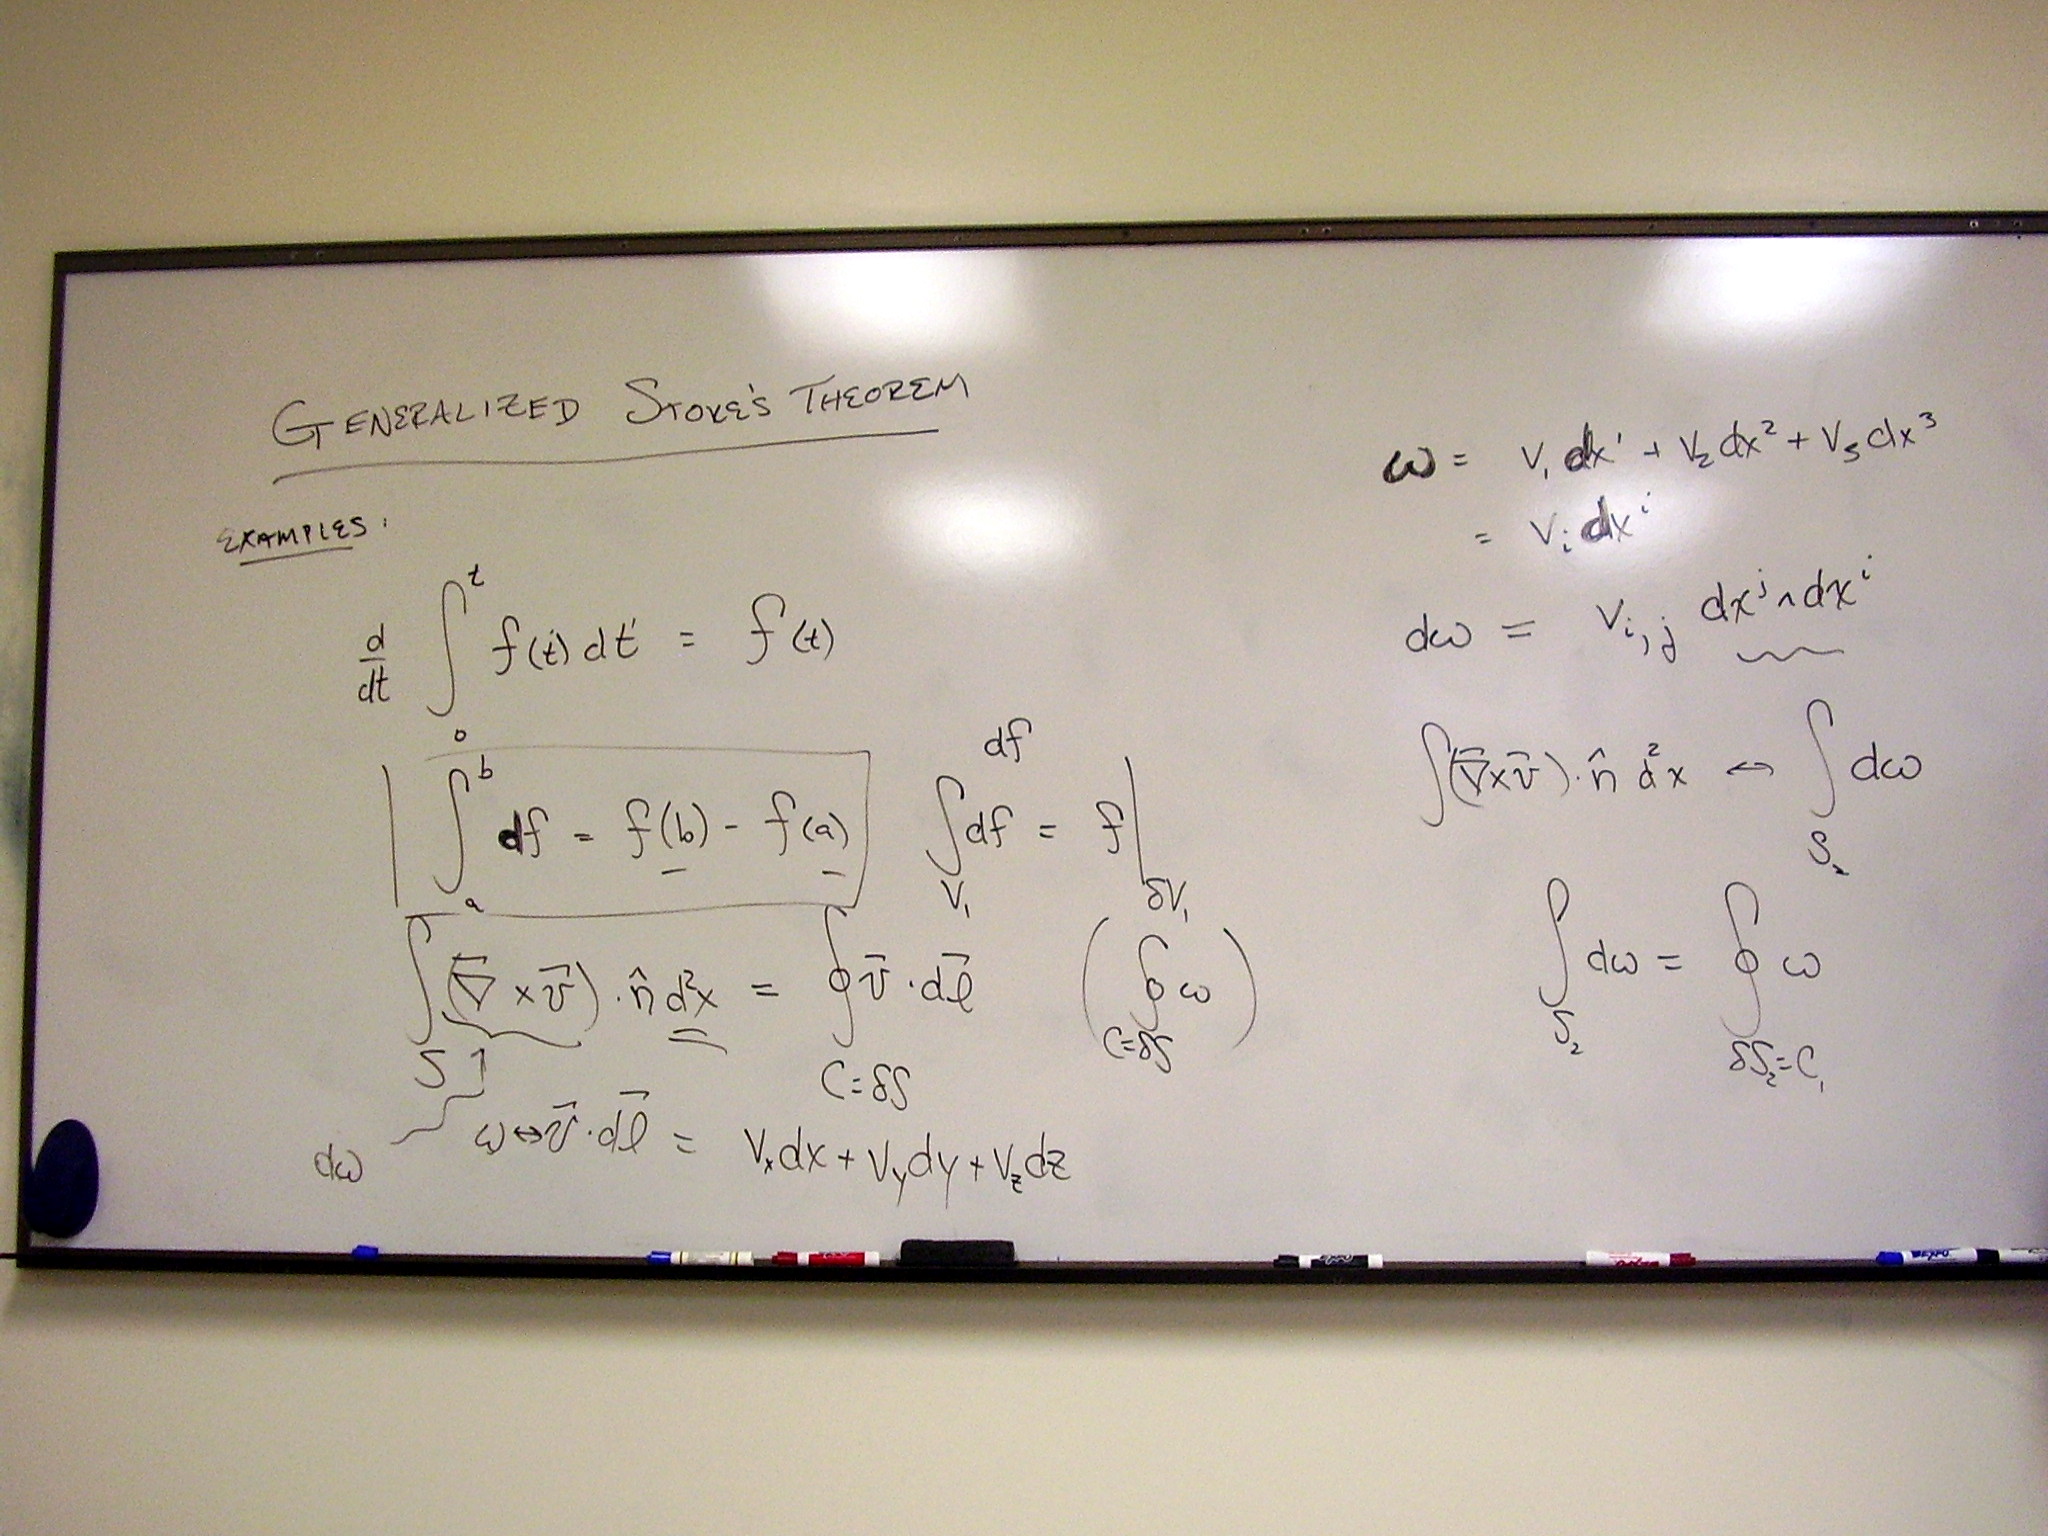 GENERALIZED STOKE'S THEOREM
EXAMPLES:
d/dt ∫₀ᵗ f(t') dt' = f(t)
∫ₐᵇ df = f(b) - f(a)
df
∫_V₁ df = f|_δV₁
∫_S (∇⃗ × v⃗) · n̂ d²x = ∮_C=δS v⃗ · dl⃗ (∮_C=δS ω)
dω
ω ↔ v⃗ · dl⃗ = Vₓdx + V_y dy + V_z dz
ω = V₁dx¹ + V₂dx² + V₃dx³
= Vᵢdxⁱ
dω = Vᵢ,ⱼ dxʲ ∧ dxⁱ
∫(∇⃗ × v⃗) · n̂ d²x ↔ ∫_S₂ dω
∫_S₂ dω = ∮_δS₂=C₁ ω
EXPO